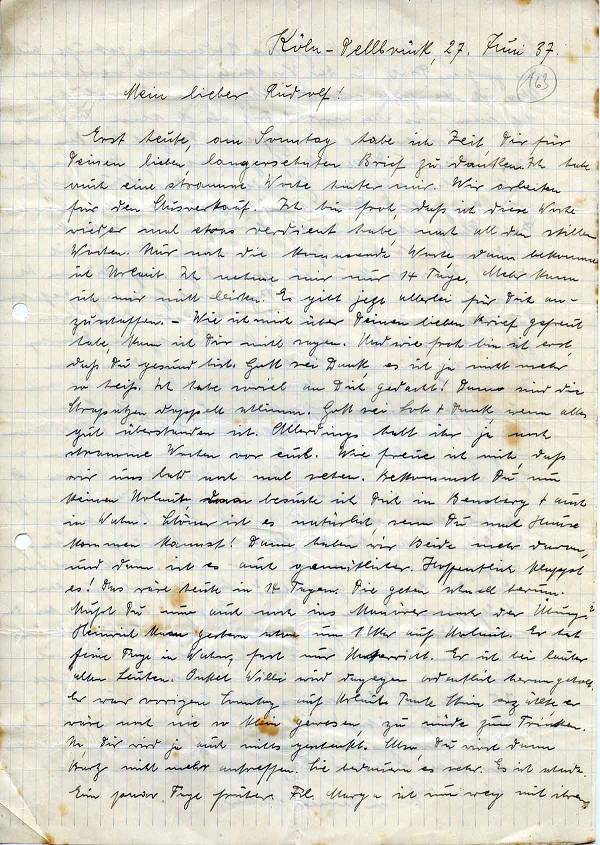 Köln-Dellbrück, 27. Juni 37.
163
Mein lieber Rudolf!
Erst heute, am Sonntag habe ich Zeit, Dir für
Deinen lieben langersehnten Brief zu danken. Ich habe
auch eine stramme Woche hinter mir. Wir arbeiten
für den Ausverkauf. Ich bin froh, daß ich diese Woche
wieder mal etwas verdient habe, nach all den stillen
Wochen. Nur noch die kommende Woche dann bekomme
ich Urlaub. Ich nehme mir nur 14 Tage. Mehr kann
ich mir nicht leisten. Es gibt jetzt allerlei für Dich an-
zuschaffen. – Wie ich mich über Deinen lieben Brief gefreut
habe, kann ich Dir nicht sagen. Und wie froh bin ich erst,
daß Du gesund bist. Gott sei Dank, es ist ja nicht mehr
so heiß. Ich habe soviel an Dich gedacht! Dann sind die
Strapatzen doppelt schlimm. Gott sei Lob + Dank, wenn alles
gut überstanden ist. Allerdings habt ihr ja noch
stramme Wochen vor euch. Wie freue ich mich, daß
wir uns bald noch mal sehen. Bekommst Du nun
keinen Urlaub besuche ich Dich in Bensberg + auch
in Wahn. Schöner ist es natürlich, wenn Du nach Hause
kommen kannst! Dann haben wir Beide mehr davon,
und dann ist es auch gemütlicher. Hoffentlich klappt
es! Das wäre heute in 14 Tagen. Die gehen schnell herum.
Mußt Du nun auch noch ins Manöver nach der Übung?
Heinrich kam gestern um 1 Uhr auf Urlaub. Er hat
feine Tage in Wahn, fast nur Unterricht. Er ist bei lauter
alten Leuten. Onkel Willi wird dagegen ordentlich herangeholt.
Er war vorigen Sonntag auf Urlaub. Tante erzählte er
wäre noch nie so klein gewesen, zu müde zum Trinken.
Na, Dir wird ja auch nichts geschenkt. Also, Du wirst dann
nicht mehr antreffen. Sie bedauern es sehr. Es ist schade.
Ein paar Tage früher. Frl. Marga ist nun weg mit ihren